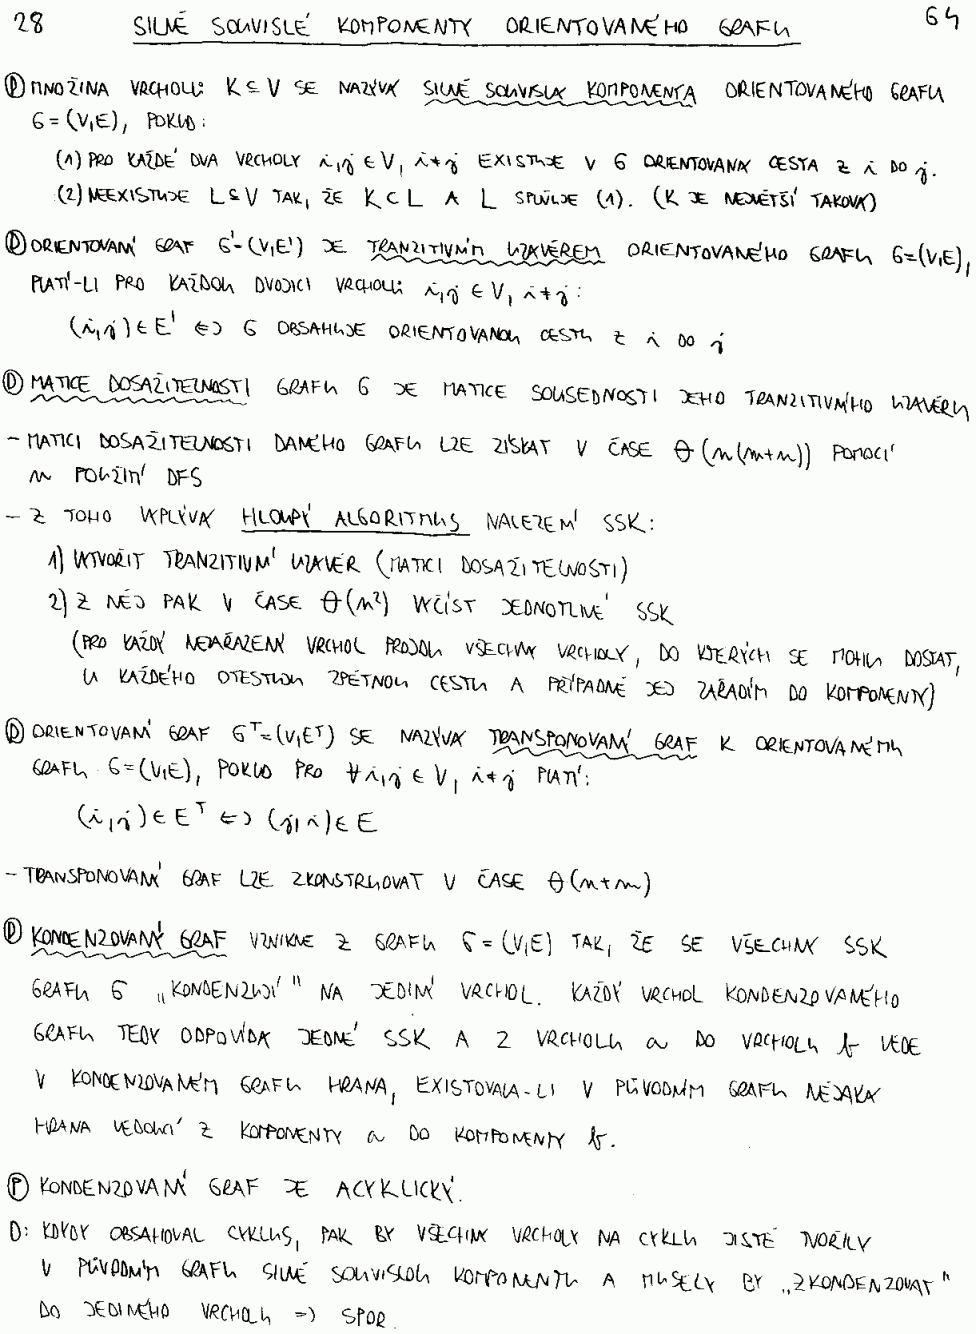 28 SILNĚ SOUVISLÉ KOMPONENTY ORIENTOVANÉHO GRAFU 64
Ⓓ MNOŽINA VRCHOLŮ K ⊆ V SE NAZÝVÁ SILNĚ SOUVISLÁ KOMPONENTA ORIENTOVANÉHO GRAFU
G = (V,E), POKUD:
(1) PRO KAŽDÉ DVA VRCHOLY i,j ∈ V, i ≠ j EXISTUJE V G ORIENTOVANÁ CESTA Z i DO j.
(2) NEEXISTUJE L ⊆ V TAK, ŽE K ⊂ L A L SPLŇUJE (1). (K JE NEJVĚTŠÍ TAKOVÁ)
Ⓓ ORIENTOVANÝ GRAF G' = (V,E') JE TRANZITIVNÍM UZÁVĚREM ORIENTOVANÉHO GRAFU G=(V,E),
PLATÍ-LI PRO KAŽDOU DVOJICI VRCHOLŮ i,j ∈ V, i ≠ j:
(i,j) ∈ E' ⇔ G OBSAHUJE ORIENTOVANOU CESTU Z i DO j
Ⓓ MATICE DOSAŽITELNOSTI GRAFU G JE MATICE SOUSEDNOSTI JEHO TRANZITIVNÍHO UZÁVĚRU
- MATICI DOSAŽITELNOSTI DANÉHO GRAFU LZE ZÍSKAT V ČASE Θ(n(m+n)) POMOCÍ
n POUŽITÍ DFS
- Z TOHO VYPLÝVÁ HLOUPÝ ALGORITMUS NALEZENÍ SSK:
1) VYTVOŘIT TRANZITIVNÍ UZÁVĚR (MATICI DOSAŽITELNOSTI)
2) Z NĚJ PAK V ČASE Θ(n²) VYČÍST JEDNOTLIVÉ SSK
(PRO KAŽDÝ NEZAŘAZENÝ VRCHOL PROJDU VŠECHNY VRCHOLY, DO KTERÝCH SE MOHU DOSTAT,
U KAŽDÉHO OTESTUJU ZPĚTNOU CESTU A PŘÍPADNĚ JEJ ZAŘADÍM DO KOMPONENTY)
Ⓓ ORIENTOVANÝ GRAF Gᵀ=(V,Eᵀ) SE NAZÝVÁ TRANSPONOVANÝ GRAF K ORIENTOVANÉMU
GRAFU G=(V,E), POKUD PRO ∀ i,j ∈ V, i ≠ j PLATÍ:
(i,j) ∈ Eᵀ ⇔ (j,i) ∈ E
- TRANSPONOVANÝ GRAF LZE ZKONSTRUOVAT V ČASE Θ(n+m)
Ⓓ KONDENZOVANÝ GRAF VZNIKNE Z GRAFU G = (V,E) TAK, ŽE SE VŠECHNY SSK
GRAFU G „KONDENZUJÍ" NA JEDINÝ VRCHOL. KAŽDÝ VRCHOL KONDENZOVANÉHO
GRAFU TEDY ODPOVÍDÁ JEDNÉ SSK A Z VRCHOLU a DO VRCHOLU b VEDE
V KONDENZOVANÉM GRAFU HRANA, EXISTOVALA-LI V PŮVODNÍM GRAFU NĚJAKÁ
HRANA VEDOUCÍ Z KOMPONENTY a DO KOMPONENTY b.
Ⓟ KONDENZOVANÝ GRAF JE ACYKLICKÝ.
D: KDYBY OBSAHOVAL CYKLUS, PAK BY VŠECHNY VRCHOLY NA CYKLU JISTĚ TVOŘILY
V PŮVODNÍM GRAFU SILNĚ SOUVISLOU KOMPONENTU A MUSELY BY „ZKONDENZOVAT"
DO JEDINÉHO VRCHOLU => SPOR.